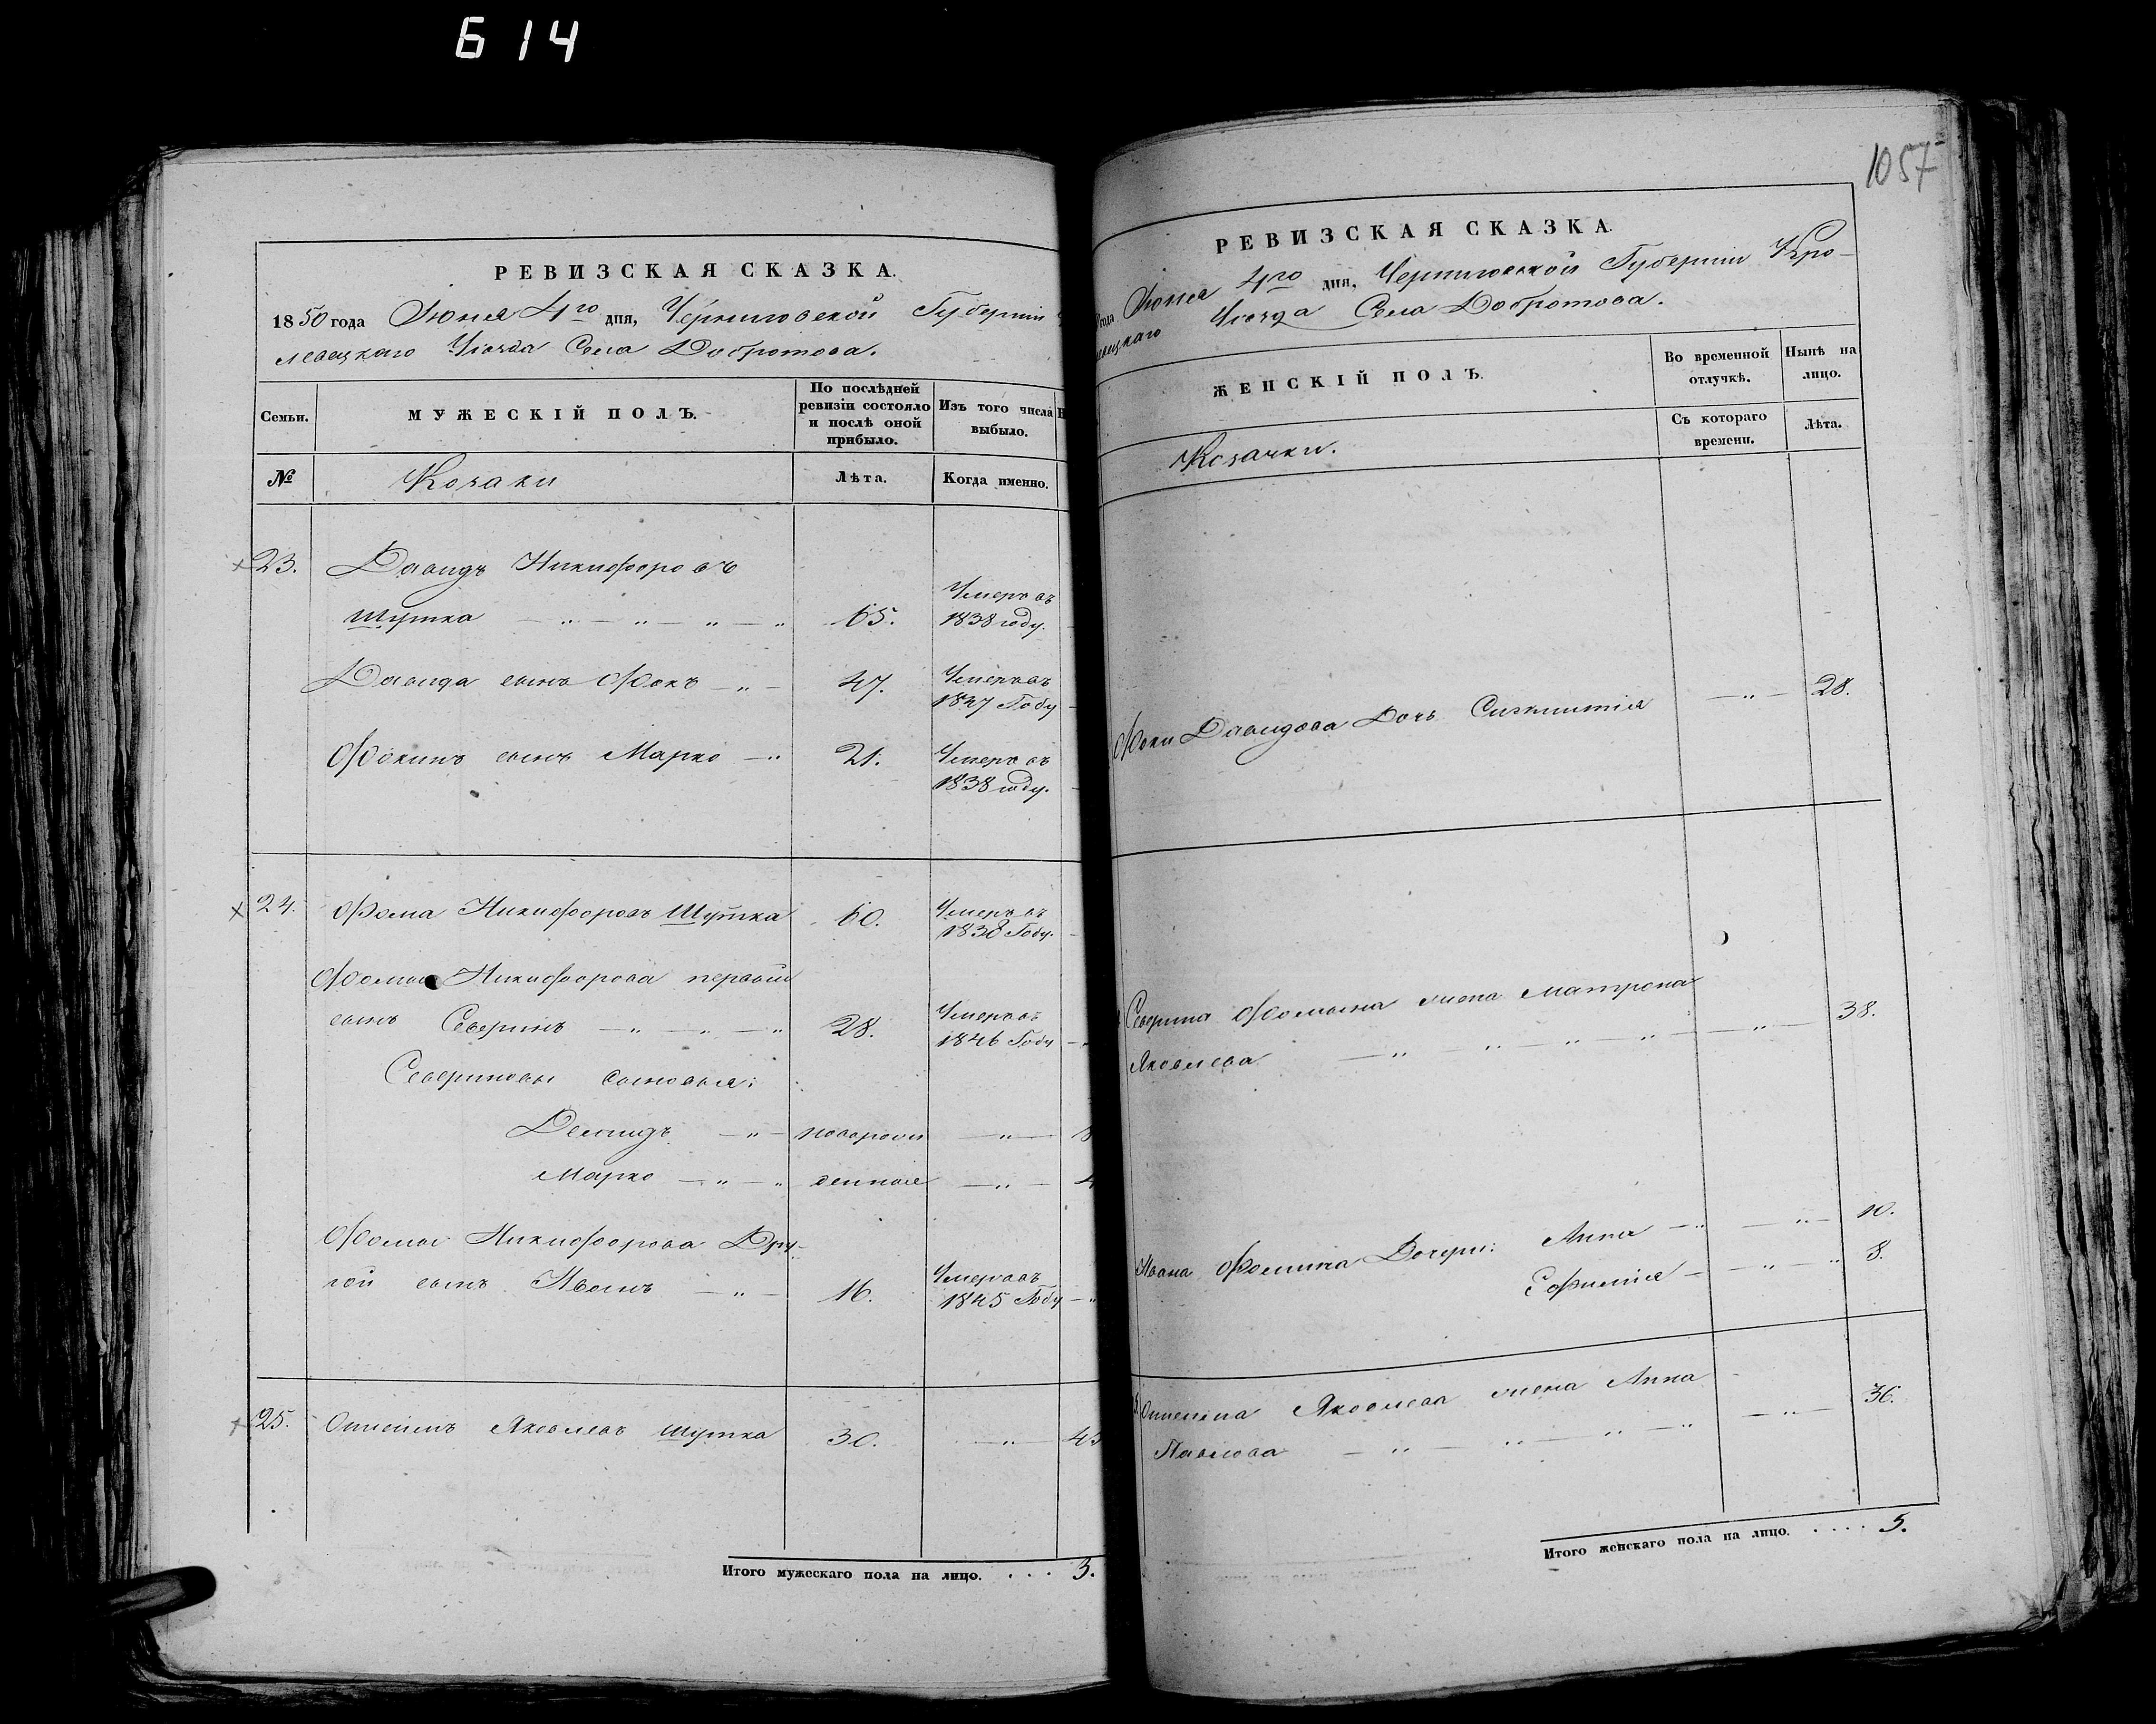 614
РЕВИЗСКАЯ СКАЗКА.
1850 года Іюня 4го дня, Черниговской Губерніи
левецкаго Уѣзда Села Добротова.
Семьи.
МУЖЕСКІЙ ПОЛЪ.
По послѣдней
ревизіи состояло
и послѣ оной
прибыло.
Изъ того числа
выбыло.
№
Козаки
Лѣта.
Когда именно.
23. Давидъ Никифоровъ
Шутка — „ — „ — „ — „ 65. Умеръ въ 1838 году.
Давида сынъ Фокъ — „ — 47. Умеръ въ 1847 Году
Фокинъ сынъ Марко — „ 21. Умеръ въ 1838 году.
24. Фома Никифоровъ Шутка 60. Умеръ въ 1838 Году.
Фомы Никифорова первый
сынъ Северинъ — „ — „ — „ 28. Умеръ въ 1846 Году
Севериновы сыновья:
Демидъ — „ — новорож — „ —
Марко — „ — „ денные — „ —
Фомы Никифорова Дру-
гой сынъ Иванъ — „ — 16. Умеръ въ 1845 Году
25. Яковлевъ Шутка 30. — „ — 45
Итого мужескаго пола на лицо. . . . 3.
1057
РЕВИЗСКАЯ СКАЗКА.
года Іюня 4го дня, Черниговской Губерніи Кро-
левецкаго Уѣзда Села Добротова.
ЖЕНСКІЙ ПОЛЪ.
Во временной
отлучкѣ.
Нынѣ на
лицо.
Козачки.
Съ котораго
времени.
Лѣта.
Фоки Давидова Дочь — „ — 28.
Северина Фомина жена Матрона
Яковлева — „ „ — „ — „ — „ — 38.
Ивана Фомина Дочери: Анна — „ — „ — 10.
Ефимія — — „ — „ 8.
Яковлева жена Анна
Павлова — „ — „ — „ — „ — „ — 36.
Итого женскаго пола на лицо. . . . . 5.